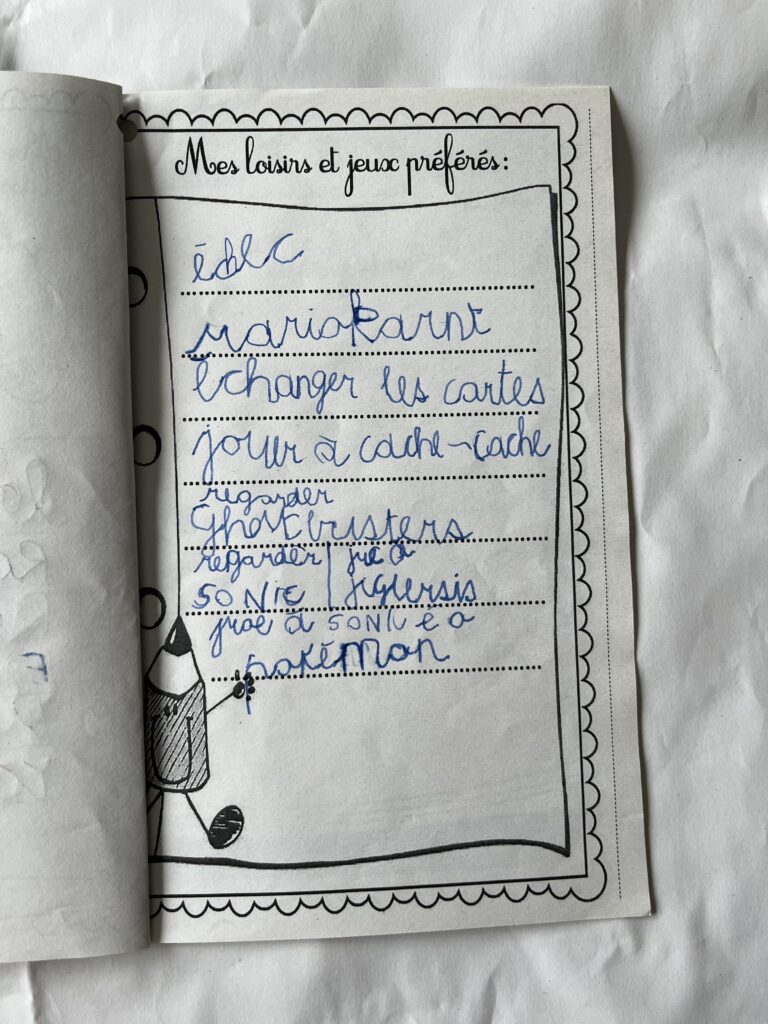 Mes loisirs et jeux préférés:
mariokarnt
échanger les cartes
jouer à cache-cache
regarder
Ghostbusters
regarder | jue à
SONIC
joue à SONIC é a
pokémon